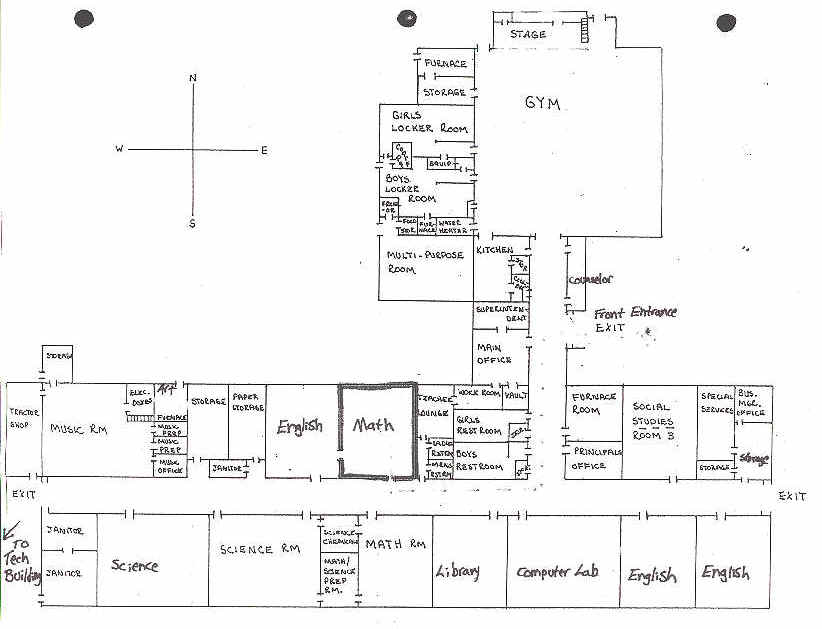 STAGE
FURNACE
STORAGE
GYM
GIRLS
LOCKER ROOM
N
W
E
S
EQUIP
BOYS
LOCKER
ROOM
FUR-
NACE
WATER
HEATER
MULTI-PURPOSE
ROOM
KITCHEN
Counselor
SUPERINTEN-
DENT
Front Entrance
EXIT
MAIN
OFFICE
STORAGE
TRACTOR
SHOP
MUSIC RM
ELEC.
Art
FURNACE
MUSIC
PREP
MUSIC
PREP
MUSIC
OFFICE
STORAGE
PAPER
STORAGE
JANITOR
English
Math
TEACHER
LOUNGE
WORK ROOM
VAULT
GIRLS
REST ROOM
LADIES
RSTRM
MENS
RSTRM
BOYS
REST ROOM
FURNACE
ROOM
PRINCIPALS
OFFICE
SOCIAL
STUDIES
ROOM 3
SPECIAL
SERVICES
STORAGE
BUS.
MGR.
OFFICE
Storage
EXIT
EXIT
TO
Tech
Building
JANITOR
JANITOR
Science
SCIENCE RM
SCIENCE
CHEMICALS
MATH/
SCIENCE
PREP
RM.
MATH RM
Library
Computer Lab
English
English